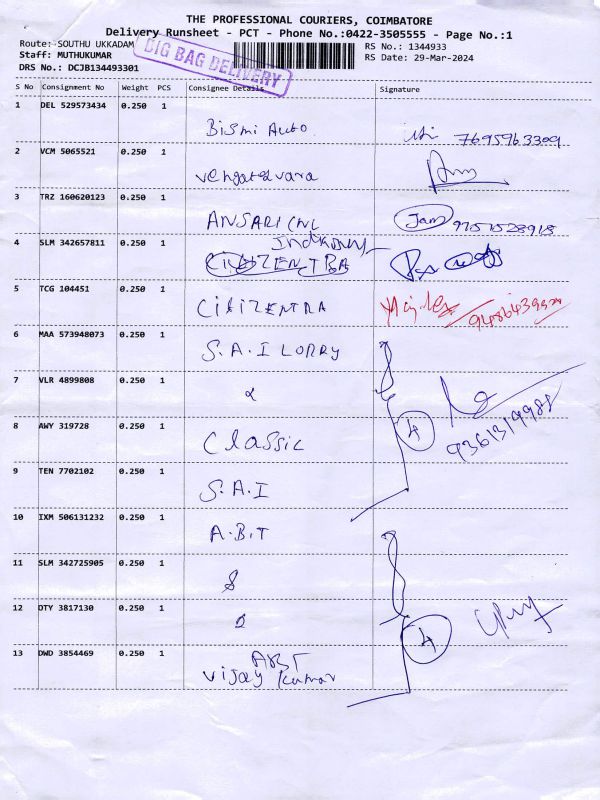 THE PROFESSIONAL COURIERS, COIMBATORE
Delivery Runsheet - PCT - Phone No.:0422-3505555 - Page No.:1
Route: SOUTHU UKKADAM
BIG BAG DELIVERY
RS No.: 1344933
Staff: MUTHUKUMAR
RS Date: 29-Mar-2024
DRS No.: DCJB134493301
S No Consignment No Weight PCS Consignee Details Signature
1 DEL 529573434 0.250 1
Bismi Auto 7695963309
2 VCM 5065521 0.250 1
Vengatesvara
3 TRZ 160620123 0.250 1
ANSARI CNL Jam 9751528918
4 SLM 342657811 0.250 1
CITIZENTRA
5 TCG 104451 0.250 1
CITIZENTRA
6 MAA 573948073 0.250 1
S.A.I LORRY
7 VLR 4899808 0.250 1
4
9361319988
8 AWY 319728 0.250 1
Classic
9 TEN 7702102 0.250 1
S.A.I
10 IXM 506131232 0.250 1
A.B.T
11 SLM 342725905 0.250 1
12 OTY 3817130 0.250 1
4
13 DWD 3854469 0.250 1
ABT
Vijay Kumar